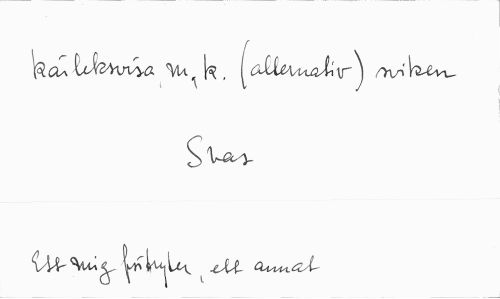 kärleksvisa, m, k. (alternativ) sviken
Svar
Ett mig förtryter, ett annat